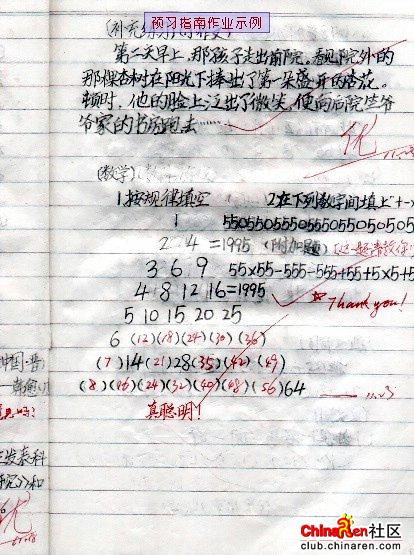 预习指南作业示例
第二天早上,那孩子走出前院。看见院外的
那棵杏树在阳光下捧出了第一朵盛开的杏花。
顿时,他的脸上泛出了微笑,便向后院竺爷
爷家的书房跑去……
优
(数学)
1按规律填空 2在下列数字间填上"+-×
1 55055055505550550505
2 4 =1995 (附加题)
3 6 9 55×55-555-555+55+5×5+5
4 8 12 16 =1995 Thank you!
5 10 15 20 25
6 (12)(18)(24)(30)(36)
(7)14(21)28(35)(42)(49)
(8)(16)(24)(32)(40)(48)(56)64
真聪明!
中国·晋
发泰科
和
优
ChinaRen社区
club.chinaren.com